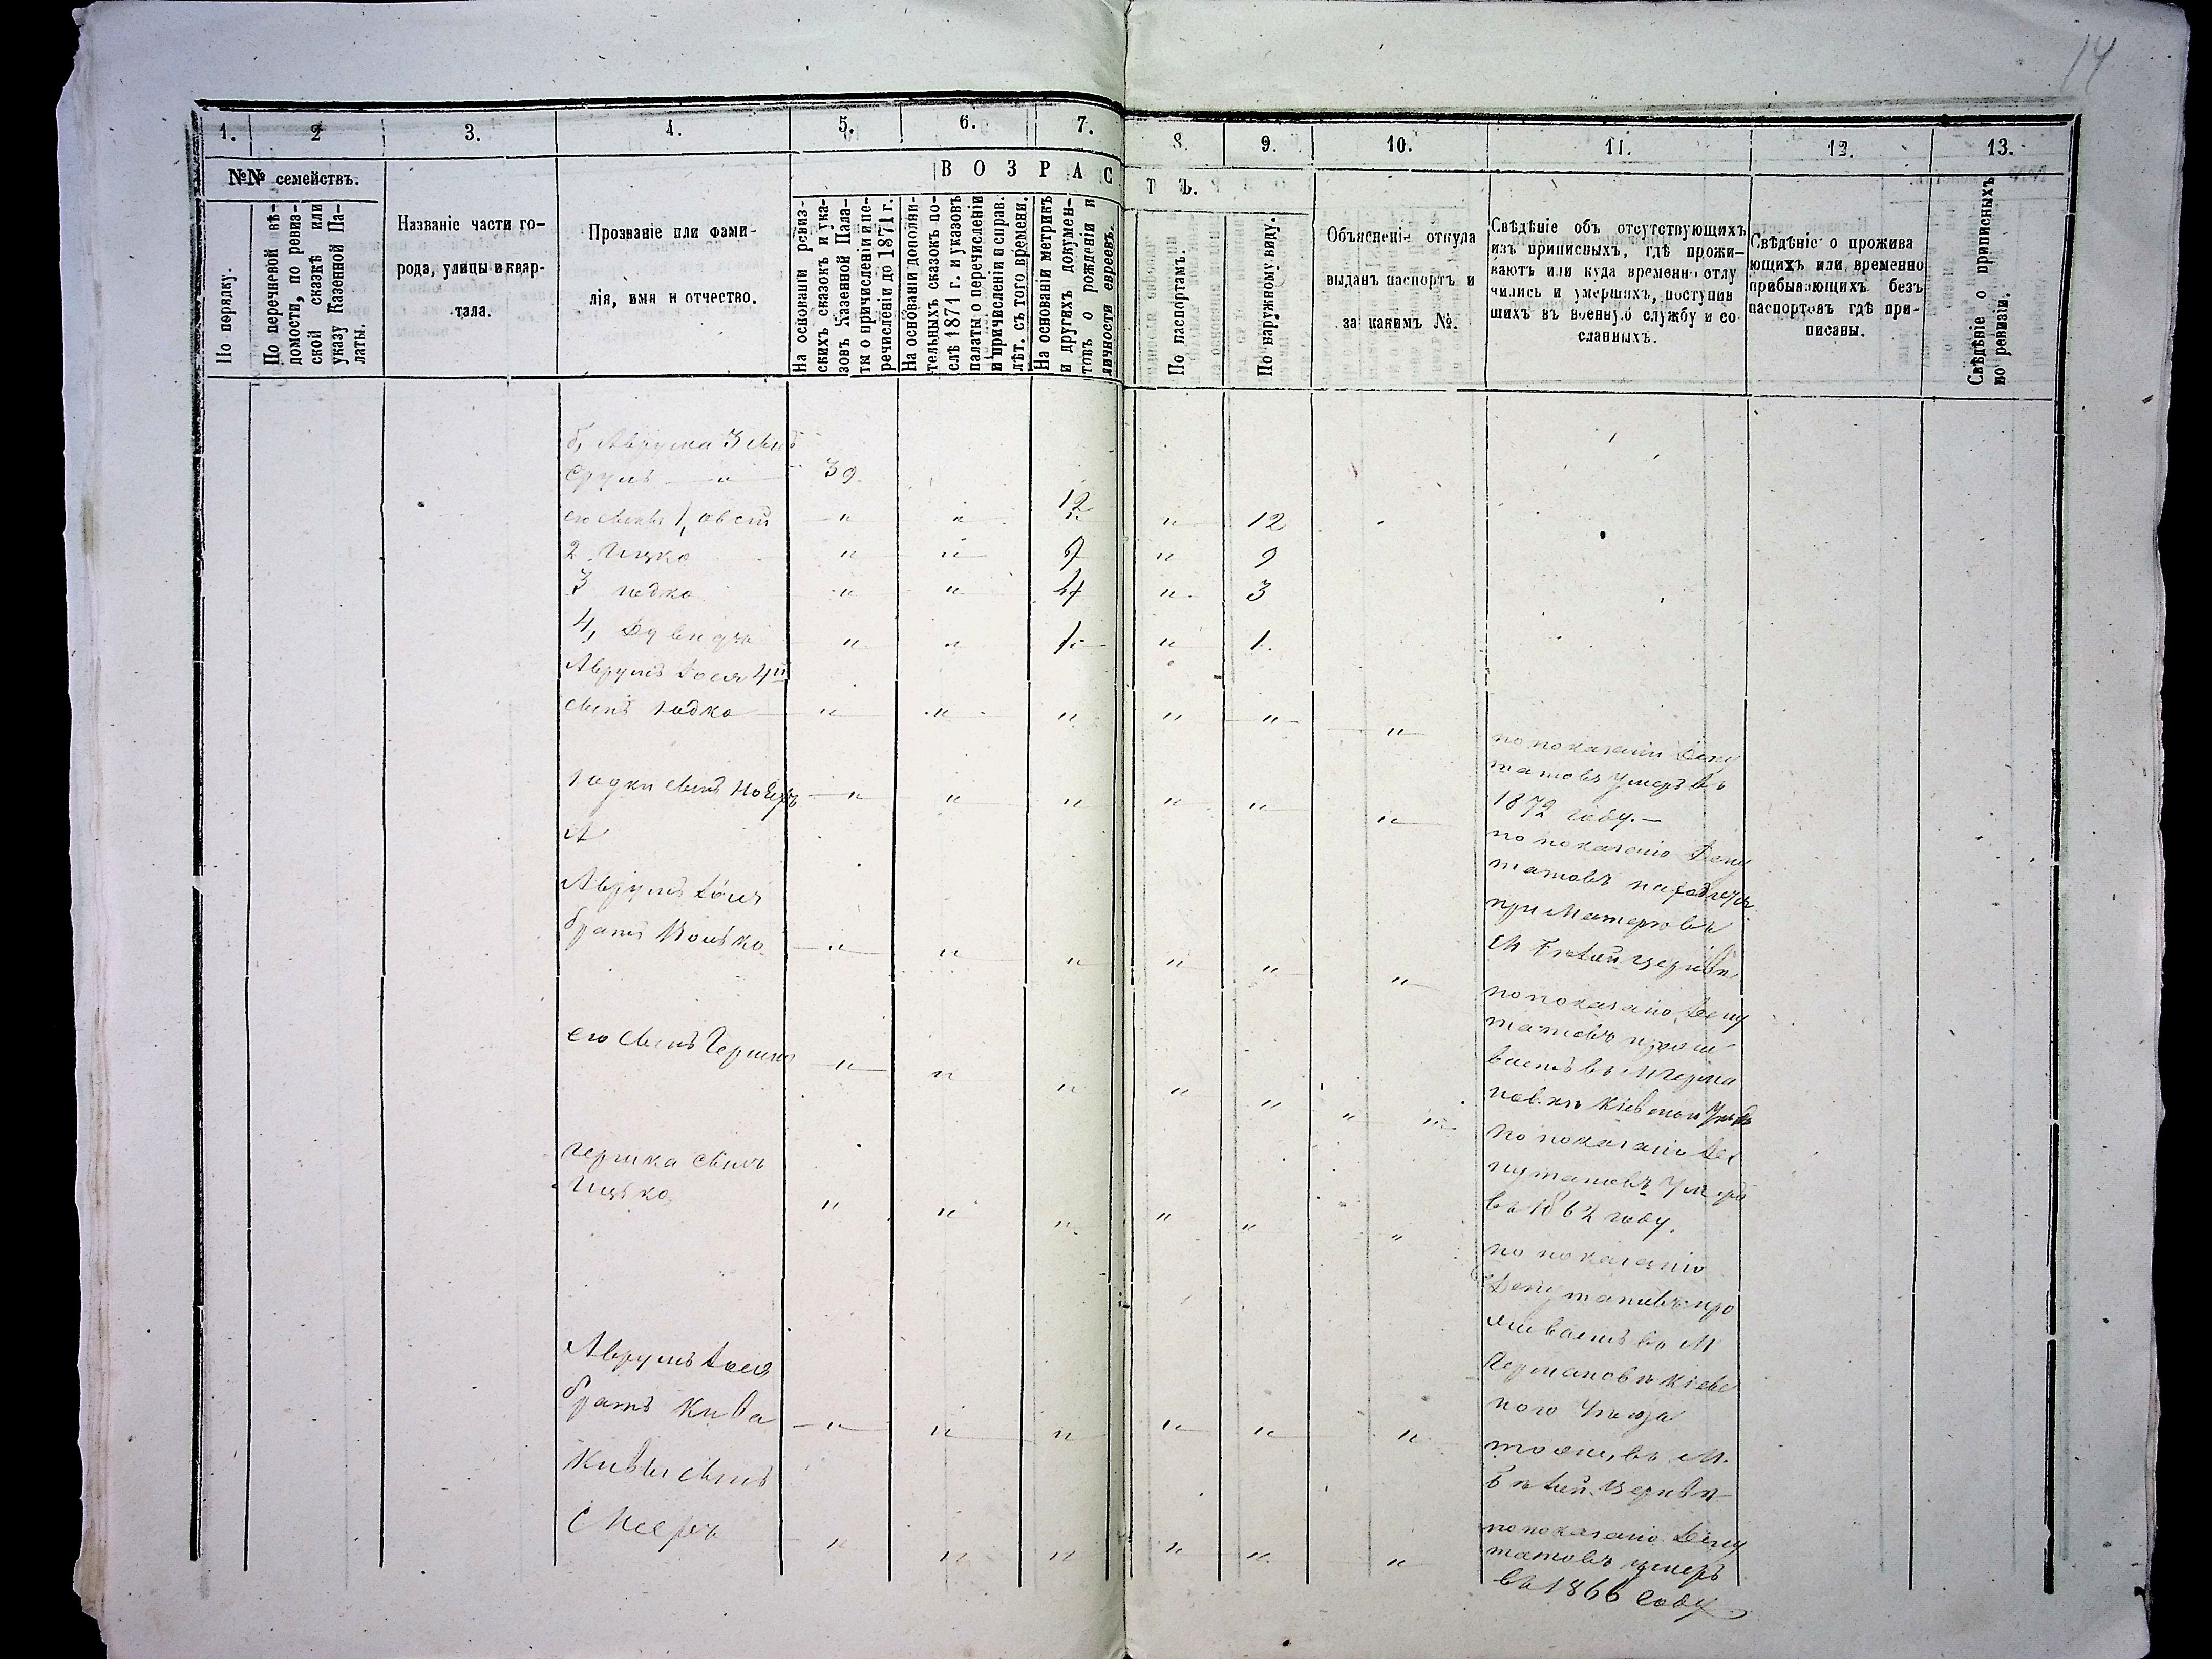 14
1. 2 3. 4. 5. 6. 7. 8. 9. 10. 11. 12. 13.
№№ семействъ.
По порядку.
По перечневой вѣ-
домости, по ревиз-
ской сказкѣ или
указу Казенной Па-
латы.
Названіе части го-
рода, улицы и квар-
тала.
Прозваніе или фами-
лія, имя и отчество.
ВОЗРАСТЪ.
На основаніи ревиз-
скихъ сказокъ и ука-
зовъ Казенной Пала-
ты о причисленіи и пе-
речисленіи до 1871 г.
На основаніи дополни-
тельныхъ сказокъ по-
слѣ 1871 г. и указовъ
палаты о перечисленіи
и причисленіи и справ.
лѣт. съ того времени.
На основаніи метрикъ
и другихъ докумен-
товъ о рожденіи и
личности евреевъ.
По паспортамъ.
По наружному виду.
Объясненіе откуда
выданъ паспортъ и
за какимъ №.
Свѣдѣніе объ отсутствующихъ
изъ приписныхъ, гдѣ прожи-
ваютъ или куда временно отлу
чились и умершихъ, поступив
шихъ въ военную службу и со
сланныхъ.
Свѣдѣніе о прожива
ющихъ или временно
прибывающихъ безъ
паспортовъ гдѣ при-
писаны.
Свѣдѣніе о приписныхъ
по ревизіи.
Аврума 3 сынъ
Сруль — " 39
его сыновья 1, " " 12 " 12
2 Ицко " " 9 " 9
3 Іодко " " 4 " 3
4, " " 1 " 1.
Аврумъ Іося 4й
сынъ Іодко " " " " " "
по показанію Депу
татовъ умеръ въ
1872 году. —
Іодки сынъ " " " " " "
по показанію Депу
татовъ
при Матери въ
М Бѣлой церкви
Аврумъ Іося
братъ Волько " " " " " "
по показанію Депу
татовъ прожи
ваетъ въ М Герма
новкѣ Кіевскаго Уѣзда
его сынъ Гершко " " " " " "
по показанію Де
путатовъ умеръ
въ 1862 году.
Гершка сынъ
Ицько " " " " " "
по показанію
Депутатовъ про
живаетъ въ М
Германовкѣ Кіевс
кого Уѣзда
Аврумъ Іося
братъ Кива " " " " " "
тоже, въ М.
Бѣлой Церкви
Кивы сынъ
Мееръ " " " " " "
по показанію Депу
татовъ умеръ
въ 1866 году